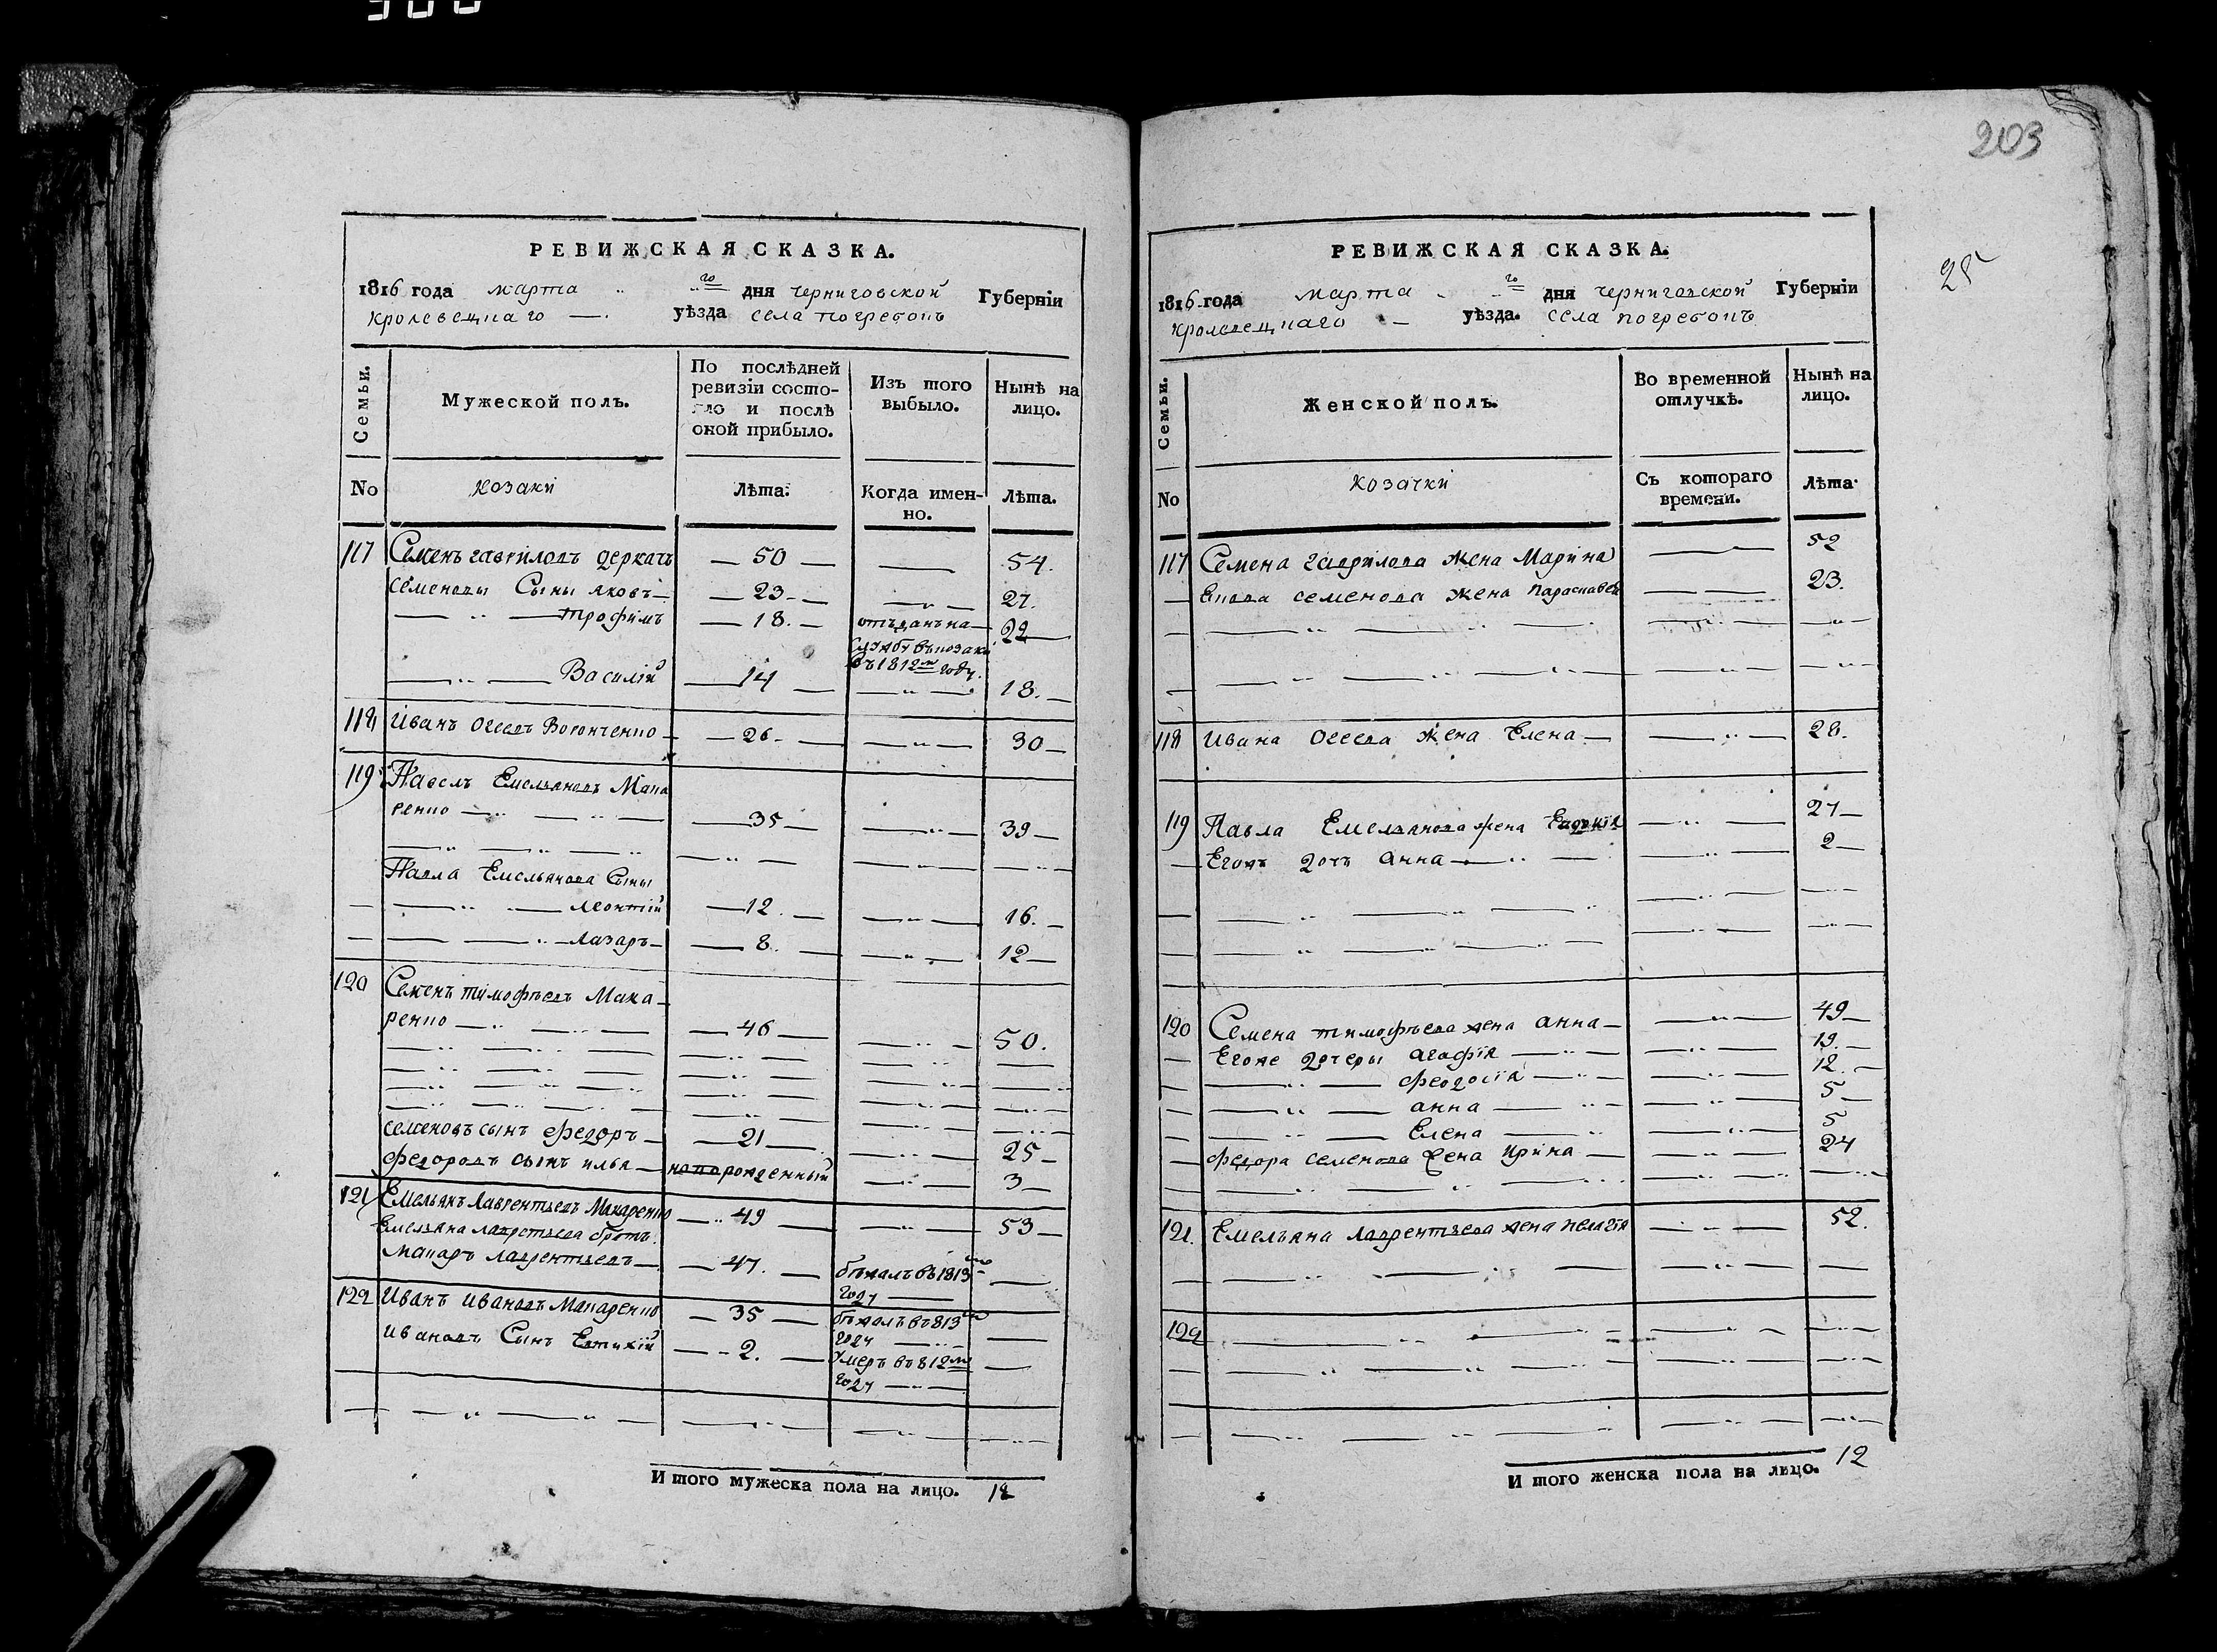 203
25
РЕВИЖСКАЯ СКАЗКА.
1816 года марта го дня черниговской Губерніи
кролевецкаго уѣзда села погребокъ
Семьи. Мужеской полъ. По послѣдней ревизіи состояло и послѣ оной прибыло. Изъ того выбыло. Нынѣ на лицо.
No козаки Лѣта. Когда именно. Лѣта.
117 Семенъ гавриловъ деркачъ — 50 — 54.
Семеновы Сыны яковъ — 23 — 27.
трофимъ — 18. — отъданъ на 22
службу въ козаки
въ 1812м году.
Василій — 14 — 18.
118 Иванъ Огеевъ — 26 — 30
119 Павелъ Емельяновъ Мака
ренко — 35 — 39
Павла Емельянова Сыны
леонтій — 12. — 16.
лазаръ — 8. — 12
120 Семенъ тимофѣевъ Мака
ренко — 46 — 50.
семеновъ сынъ федоръ — 21 — 25
федоровъ сынъ илья — новорожденный 3
121 Емельянъ Лаврентьевъ Макаренко — 49 — 53
Емельяна лаврентьева братъ
Макаръ лаврентьевъ — 47. — бѣжалъ въ 1813мъ
году
122 Иванъ Ивановъ Макаренко — 35 — бѣжалъ въ 813м
году
Ивановъ Сынъ Евтихій — 2. — Умеръ въ 812м
году
И того мужеска пола на лицо. 12
РЕВИЖСКАЯ СКАЗКА.
1816 года марта го дня черниговской Губерніи
кролевецкаго уѣзда. села погребокъ
Семьи. Женской полъ. Во временной отлучкѣ. Нынѣ на лицо.
No козачки Съ котораго времени. Лѣта.
117 Семена гаврилова жена Марина 52
семенова жена параскавея 23.
118 Ивана Огеева жена Елена 28.
119 Павла Емельянова жена 27
Егожъ дочъ анна 2
120 Семена тимофѣева жена анна 49
Егоже дочеры агафія 19.
феодосія 12.
анна 5
Елена 5
федора семенова жена Ирина 24
121. Емельяна лаврентьева жена пелагія 52.
122
И того женска пола на лицо. 12